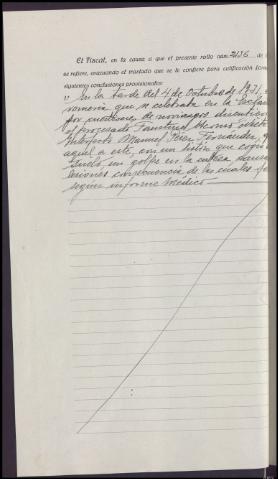 El Fiscal, en la causa a que el presente rollo núm. 2136, de
se refiere, evacuando el traslado que se le confiere para calificación form
siguientes conclusiones provisionales:
" En la tarde del 4 de Octubre de 1931,
romería que se celebraba en la
por cuestiones de noviazgos
el procesado Faustino
Manuel Pérez Fernández,
aquel a este, con un listón que cogió
suelo, un golpe en la cabeza
lesiones consecuencia de las cuales
según informe médico.